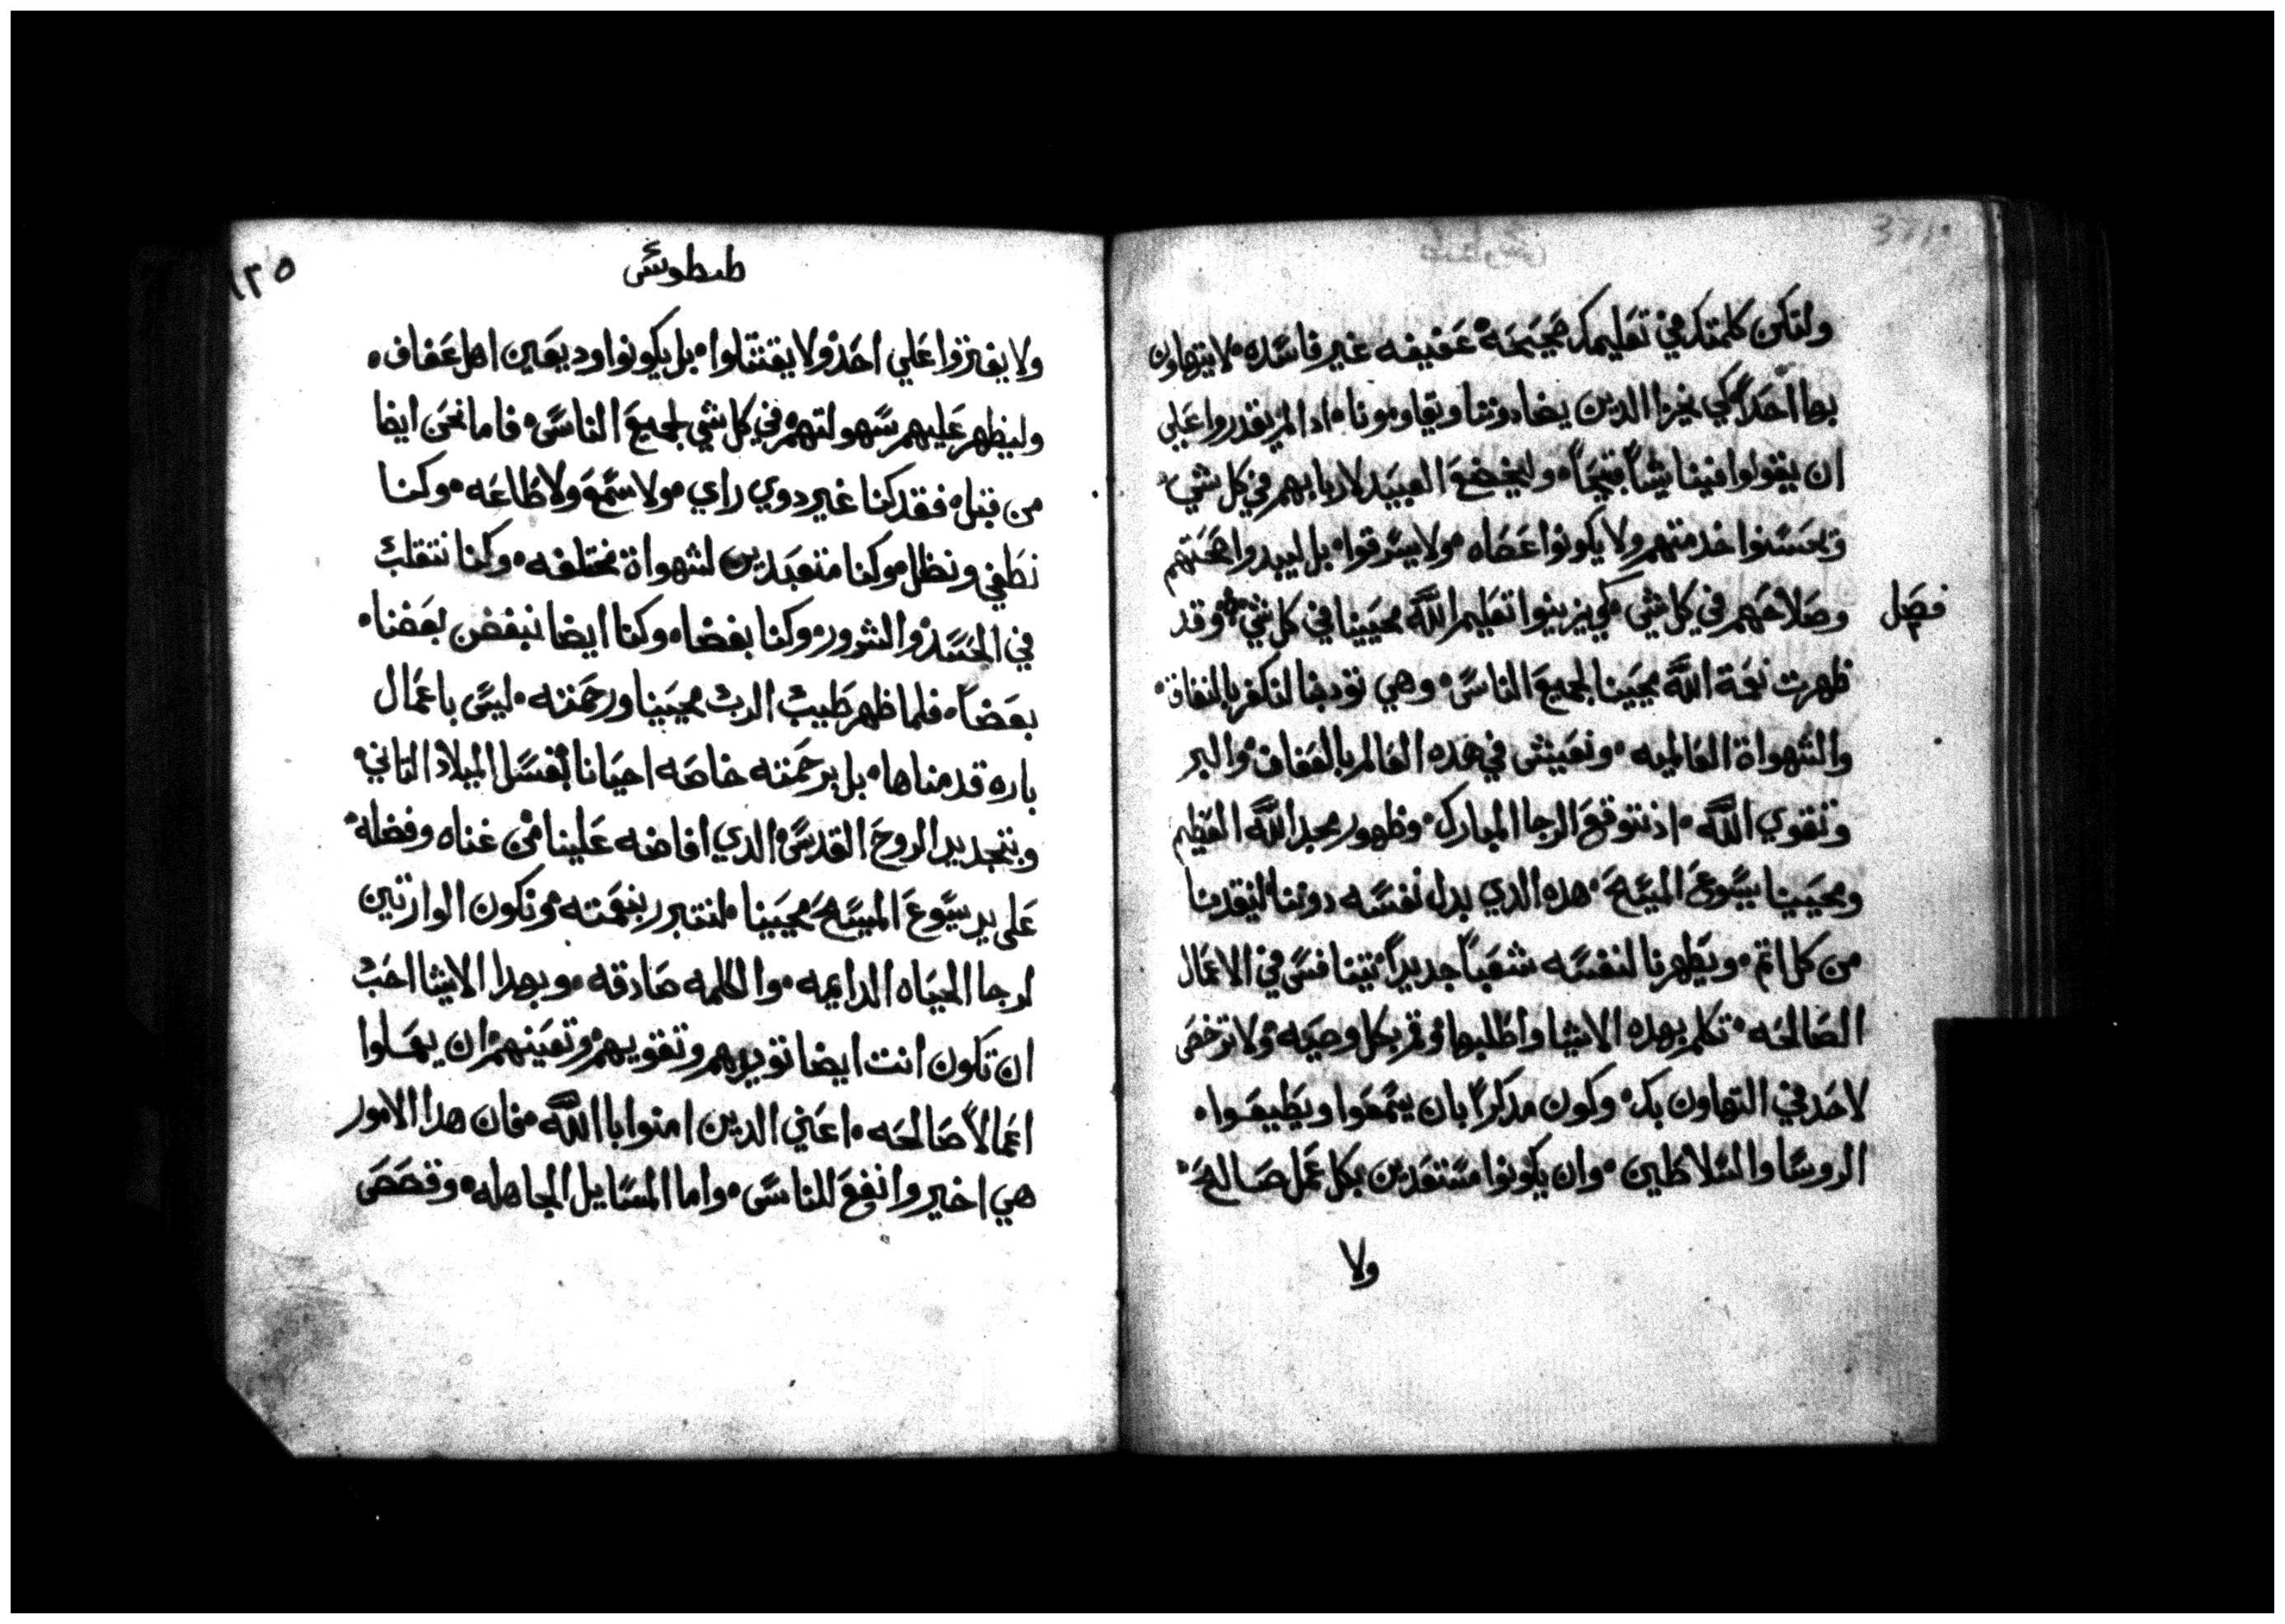 ولتكن كلمتك في تعليمك صحيحه عفيفه غير فاسده لا يتهاون
بها احداً كي يخزا الدين يضادوننا ويقاومونا ادا لم يقدروا علي
ان يقولوا فينا شياً قبيحاً وليخضع العبيد لاربابهم في كل شي
ويحسنوا خدمتهم ولا يكونوا عصاه ولا يسرقوا بل ليبدوا صحتهم
وصلاحهم في كل شي كي يزينوا تعليم الله محيينا في كل شي وقد
فصل
ظهرت نعمة الله محيينا لجميع الناس وهي تودبنا لنكفر بالنفاق
والشهواة العالميه ونعيش في هده العالم بالعفاف والبر
وتقوي الله اذ نتوقع الرجا المبارك وظهور مجد الله العظيم
ومحيينا يسوع المسيح هده الدي بدل نفسه دوننا لينقدنا
من كل اتم ويطهرنا لنفسه شعباً جديداً نتنافس في الاعمال
الصالحه تكلم بهده الاشيا واطلبها ومر بكل وصيه ولا ترخص
لاحد في التهاون بك وكون مدكراً بان يسمعوا ويطيعوا
الروسا والسلاطين وان يكونوا مستعدين بكل عمل صالح
ولا
١٣٥
طيطوس
ولا يفتروا علي احد ولا يقتتلوا بل يكونوا وديعين اهل عفاف
وليظهر عليهم سهولتهم في كل شي لجميع الناس فاما نحن ايضا
من قبل فقد كنا غير دوي راي ولا سمع ولا طاعه وكنا
نطغي ونظل وكنا متعبدين لشهواة مختلفه وكنا نتقلب
في الحسد والشرور وكنا بغضاه وكنا ايضا نبغض بعضنا
بعضاً فلما ظهر طيب الرب محيينا ورحمته ليس باعمال
باره قدمناها بل برحمته خاصه احيانا بغسل الميلاد التاني
وبتجديد الروح القدس الدي افاضه علينا من غناه وفضله
علي يد يسوع المسيح محيينا لنتبرر بنعمته ونكون الوارتين
لرجا الحياه الدايمه والكلمه صادقه وبهدا الاشيا احب
ان تكون انت ايضا تويدهم وتقويهم وتعينهم ان يعملوا
اعمالاً صالحه اعني الدين امنوا باالله فان هدا الامور
هي اخير وانفع للناس واما المسايل الجاهله وقصص